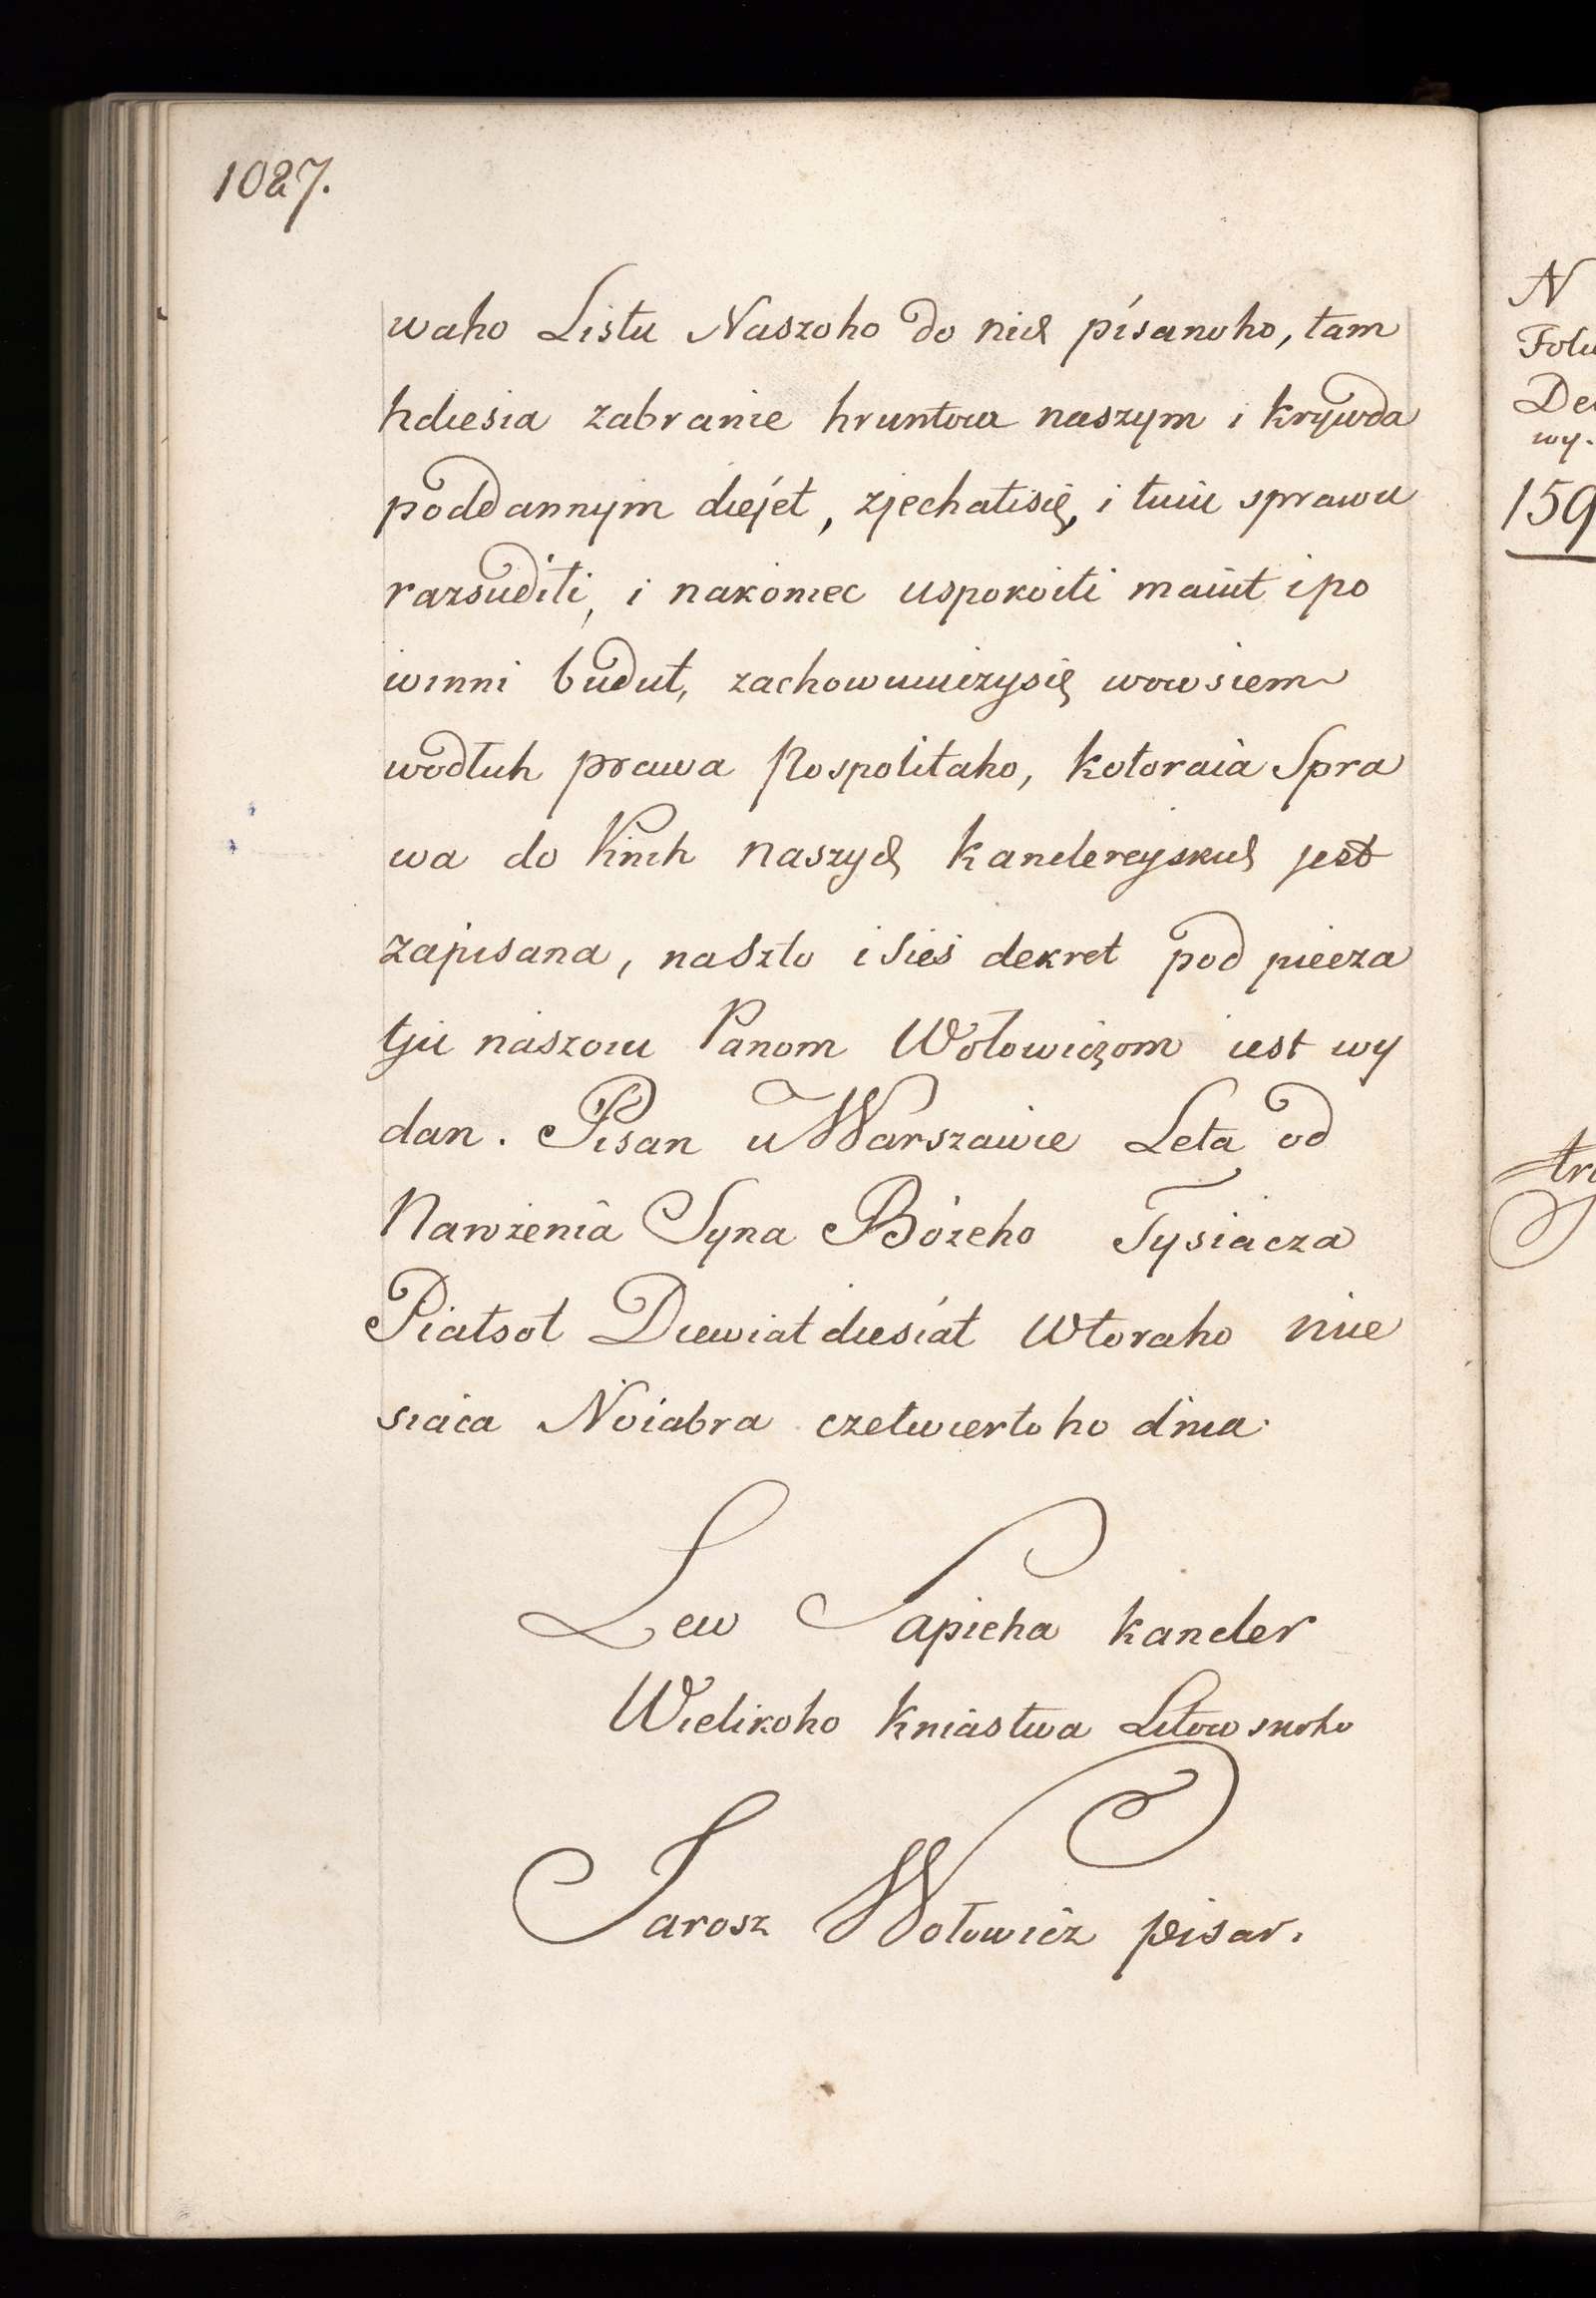 1027.
waho Listu Naszoho do nich pisanoho, tam
hdiesia zabranie hruntow naszym i krywda
poddannym diejet, zjechatisię, i tuiu sprawu
razsuditi, i nakoniec uspokoiti maiut i po
winni budut, zachowuiuczysię wowsiem
wodłuh prawa Pospolitaho, kotoraia Spra
wa do Knih naszych kancleryjskich jest
zapisana, naszto i sieś dekret pod pieeza
tju naszoiu Panom Wołowiczom iest wy
dan. Pisan u Warszawie Leta od
Narożenia Syna Bożeho Tysiacza
Piatsot Diewiatdiesiat Wtoraho mie
siaca Noiabra czetwiertoho dnia.
Lew Sapieha kancler
Wielikoho Kniastwa Litowskoho
Jarosz Wołowicz pisar.
N
wy.
159